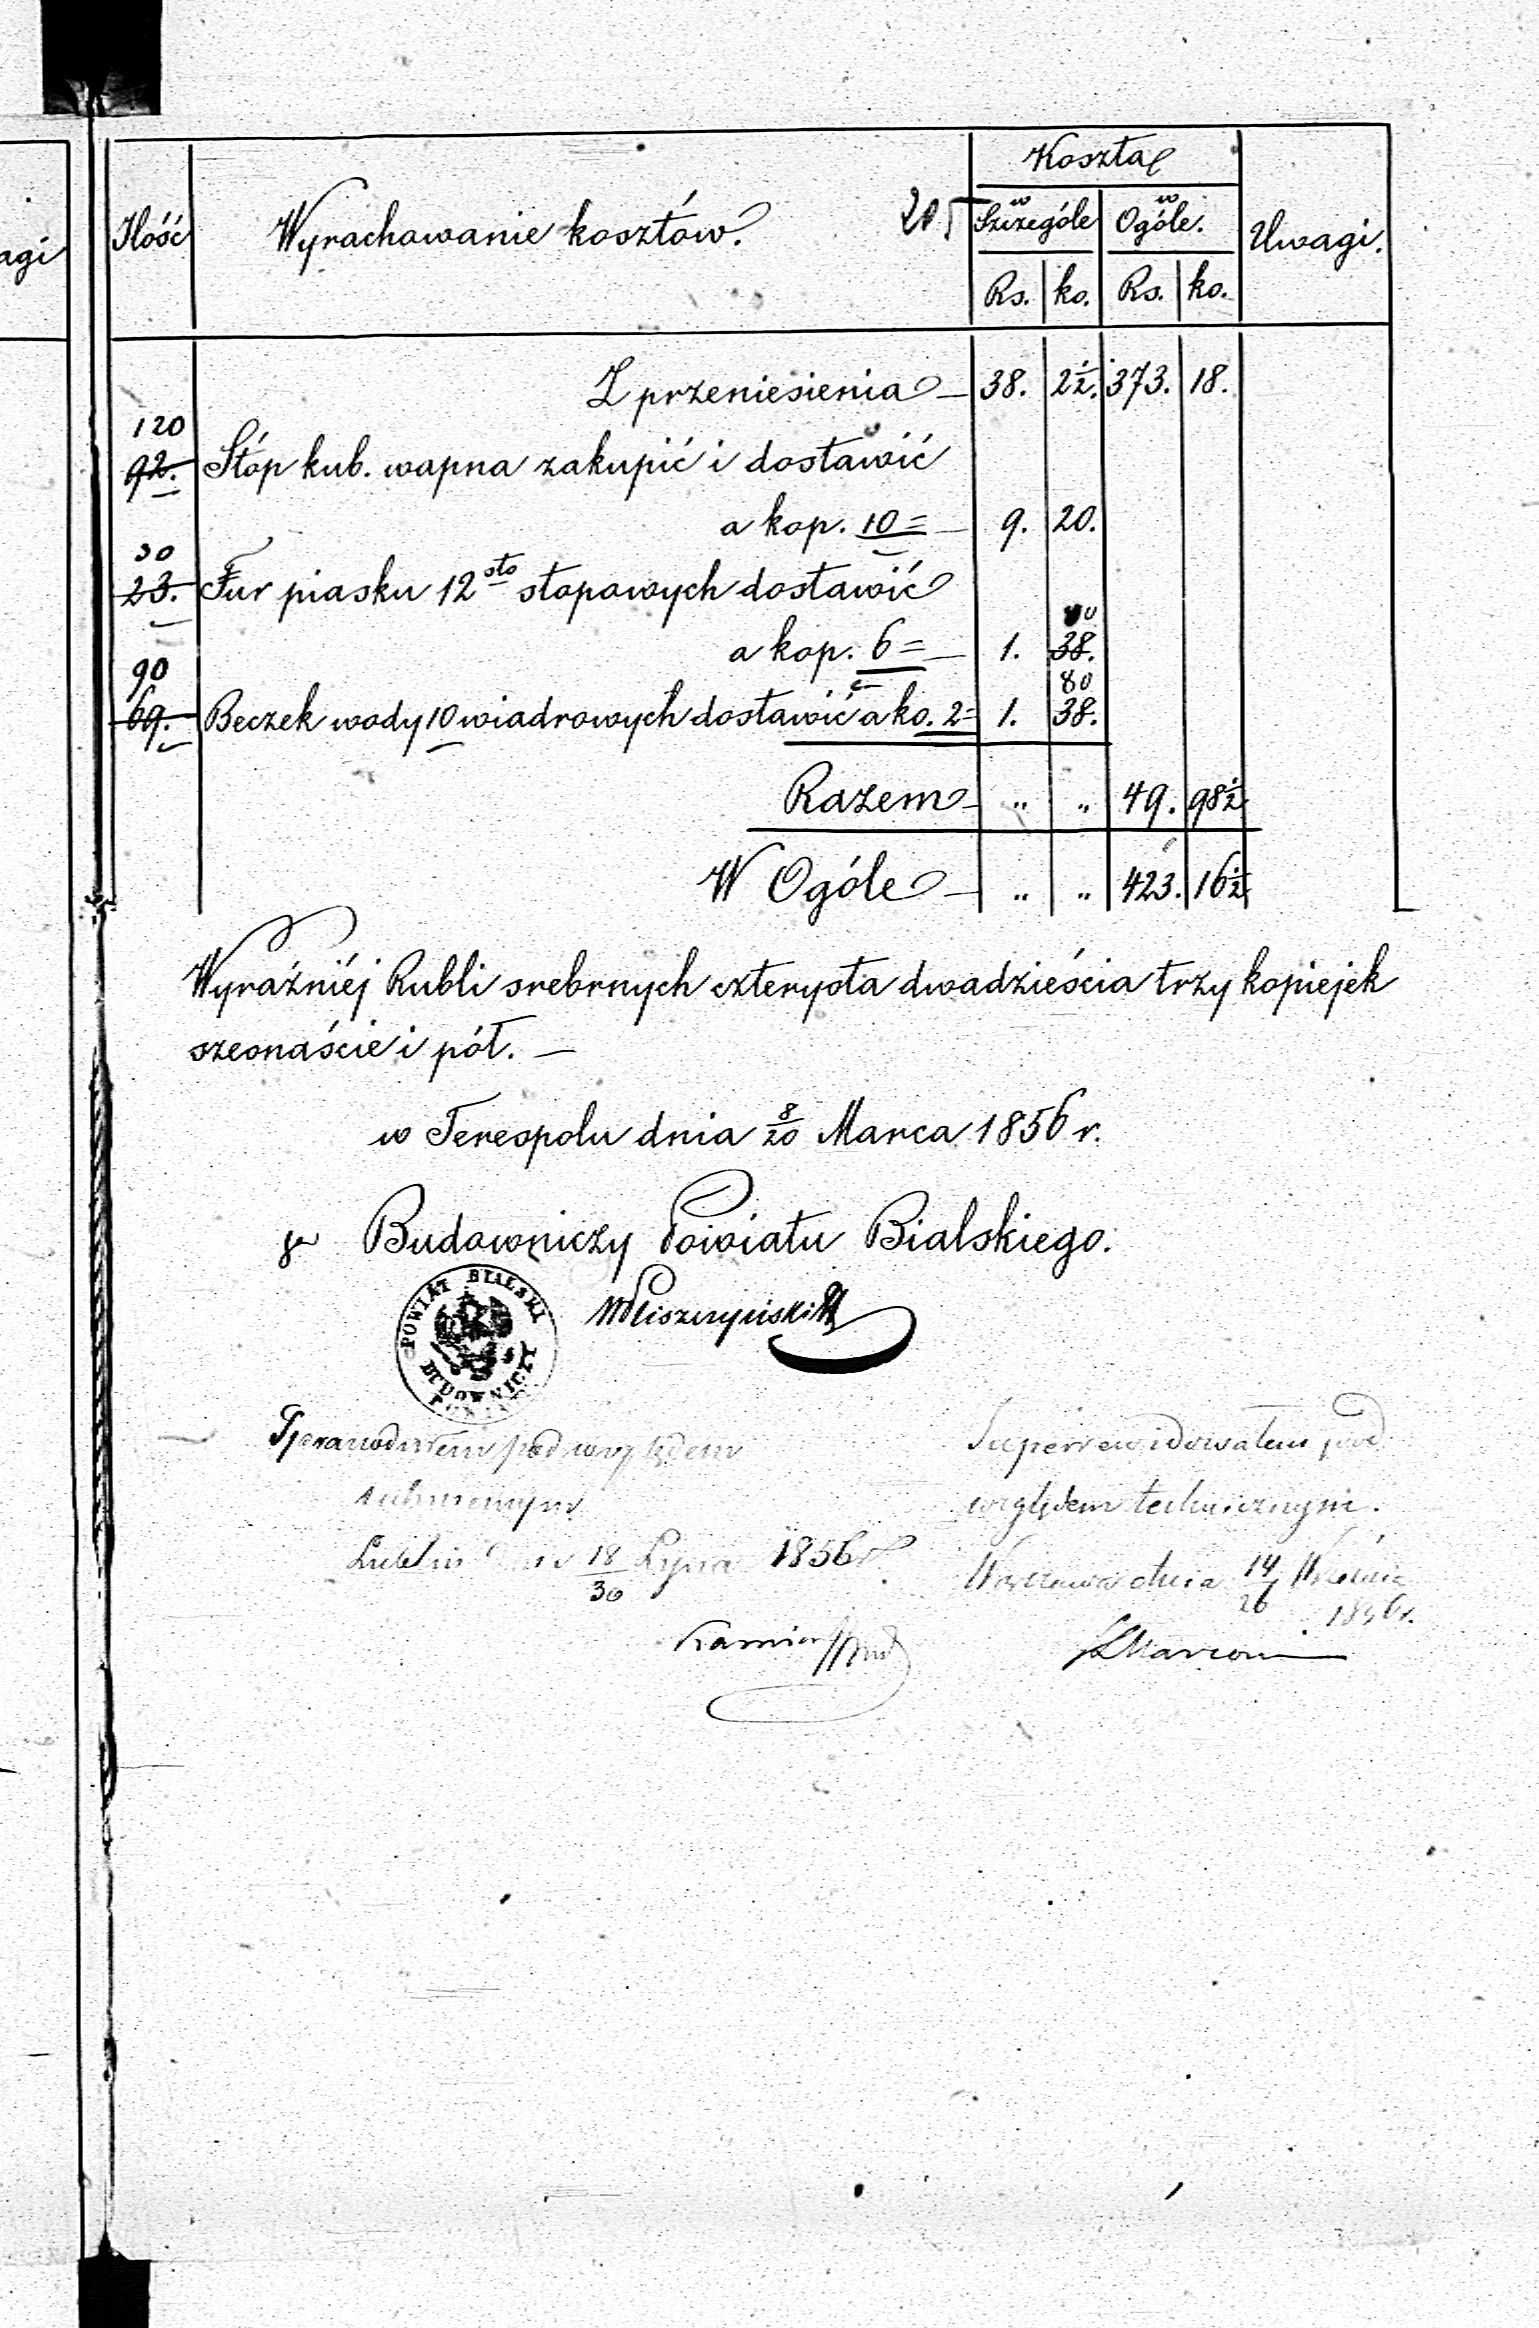 agi
Ilość
Wyrachowanie kosztów.
205
Koszta
w Szczególe
w Ogóle.
Uwagi.
Rs. ko. Rs. ko.
Z przeniesienia — 38. 2½. 373. 18.
120
92. Stóp kub. wapna zakupić i dostawić
a kop. 10= — 9. 20.
30
23. Fur piasku 12sto stopowych dostawić
80
a kop. 6= — 1. 38.
90
80
69. Beczek wody 10 wiadrowych dostawić a ko. 2= 1. 38.
Razem — „ „ 49. 98½
W Ogóle — „ „ 423. 16½
Wyraźniéj Rubli srebrnych czterysta dwadzieścia trzy kopiejek
szesnaście i pół. —
w Terespolu dnia 8/20 Marca 1856 r.
Budowniczy Powiatu Bialskiego.
POWIAT BIALSKI
BUDOWNICZY
Sprawdziłem pod względem
technicznym
Lublin dnia 18/30 Lipca 1856 r
Superrewidowałem pod
względem technicznym.
Warszawa dnia 14/26 Września
1856 r.
Marconi